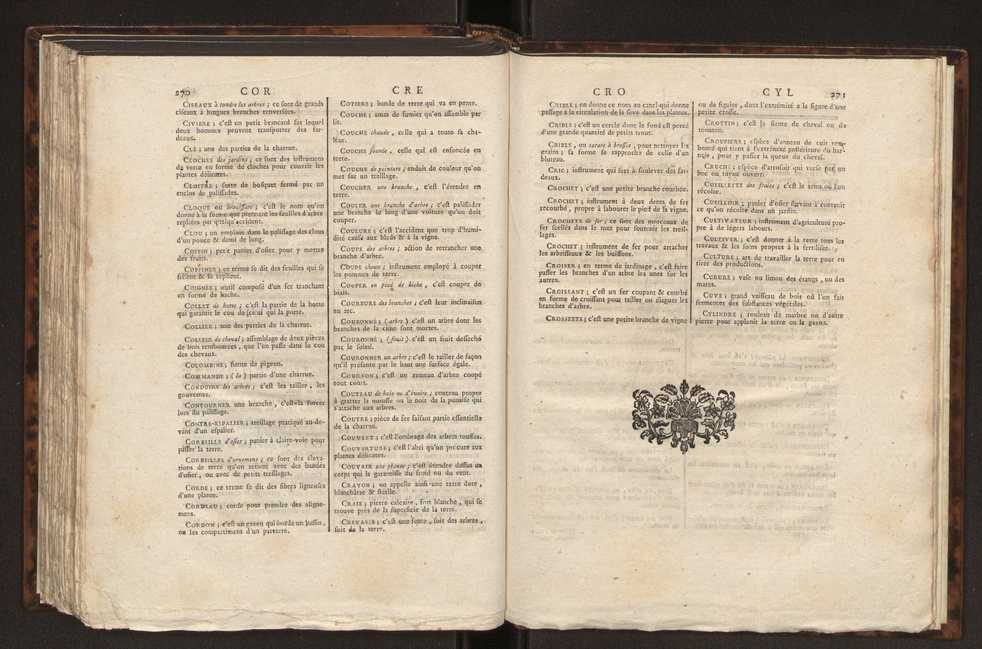 270
COR
CRE
CISEAUX à tondre les arbres; ce sont de grands
ciseaux à longues branches renversées.
CIVIERE; c'est un petit brancard sur lequel
deux hommes peuvent transporter des far-
deaux.
CLÉ; une des parties de la charrue.
CLOCHES des jardins; ce sont des instrumens
de verre en forme de cloches pour couvrir les
plantes délicates.
CLOITRE; sorte de bosquet fermé par un
enclos de palissades.
CLOQUE ou bouissure; c'est le nom qu'on
donne à la forme que prennent les feuilles d'arbre
repliées par quelqu'accident.
CLOU; on emploie dans le palissage des clous
d'un pouce & demi de long.
COFFIN; petit panier d'osier pour y mettre
des fruits.
COFFINER; ce terme se dit des feuilles qui se
sèchent & se replient.
COIGNÉE; outil composé d'un fer tranchant
en forme de hache.
COLLET de botte; c'est la partie de la botte
qui garantit le cou de celui qui la porte.
COLLIER; une des parties de la charrue.
COLLIER de cheval; assemblage de deux pièces
de bois rembourées, que l'on passe dans le cou
des chevaux.
COLOMBINE; fiente de pigeon.
COMMANDE; (la) partie d'une charrue.
CONDUIRE les arbres; c'est les tailler, les
gouverner.
CONTOURNER une branche, c'est la forcer
lors du palissage.
CONTRE-ESPALIER; treillage pratiqué au-de-
vant d'un espalier.
CORBEILLE d'osier; panier à claire-voie pour
passer la terre.
CORBEILLES d'ornemens; ce sont des éleva-
tions de terre qu'on retient avec des bandes
d'osier, ou avec de petits treillages.
CORDE; ce terme se dit des fibres ligneuses
d'une plante.
CORDEAU; corde pour prendre des aligne-
mens.
CORDON; c'est un gazon qui borde un bassin,
ou les compartimens d'un parterre.
COTIERE; bande de terre qui va en pente.
COUCHE; amas de fumier qu'on assemble par
lit.
COUCHE chaude, celle qui a toute sa cha-
leur.
COUCHE sourde, celle qui est enfoncée en
terre.
COUCHE de peinture; enduit de couleur qu'on
met sur un treillage.
COUCHER une branche, c'est l'étendre en
terre.
COUDER une branche d'arbre; c'est palissader
une branche le long d'une voiture qu'on doit
couper.
COULURE; c'est l'accident que trop d'humi-
dité cause aux bleds & à la vigne.
COUPE des arbres; action de retrancher une
branche d'arbre.
COUPE choux; instrument employé à couper
les pommes de terre.
COUPER en pied de biche, c'est couper de
biais.
COURBURE des branches; c'est leur inclinaison
en arc.
COURONNÉ; (arbre) c'est un arbre dont les
branches de la cime sont mortes.
COURONNÉ; (fruit) c'est un fruit desséché
par le soleil.
COURONNER un arbre; c'est le tailler de façon
qu'il présente par le haut une surface égale.
COURSON; c'est un rameau d'arbre coupé
tout court.
COUTEAU de bois ou d'ivoire; couteau propre
à gratter la mousse ou le noir de la punaise qui
s'attache aux arbres.
COUTRE; pièce de fer faisant partie essentielle
de la charrue.
COUVERT; c'est l'ombrage des arbres touffus.
COUVERTURE; c'est l'abri qu'on procure aux
plantes délicates.
COUVRIR une plante; c'est étendre dessus un
corps qui la garantisse du froid ou du vent.
CRAYON; on appelle ainsi une terre dure,
blanchâtre & stérile.
CRAIE; pierre calcaire, fort blanche, qui se
trouve près de la superficie de la terre.
CREVASSE; c'est une fente, soit des arbres,
soit de la terre.
CRO
CYL
271
CRIBLE; on donne ce nom au canal qui donne
passage à la circulation de la séve dans les plantes.
CRIBLE; c'est un cercle dont le fond est percé
d'une grande quantité de petits trous.
CRIBLE, ou tarare à brosse, pour nettoyer les
grains; sa forme se rapproche de celle d'un
bluteau.
CRIC; instrument qui sert à soulever des far-
deaux.
CROCHET; c'est une petite branche courbée.
CROCHET; instrument à deux dents de fer
recourbé, propre à labourer le pied de la vigne.
CROCHETS de fer; ce sont des morceaux de
fer scellés dans le mur pour soutenir les treil-
lages.
CROCHET; instrument de fer pour attacher
les arbrisseaux & les buissons.
CROISER; en terme de jardinage, c'est faire
passer les branches d'un arbre les unes sur les
autres.
CROISSANT; c'est un fer coupant & courbé
en forme de croissant pour tailler ou élaguer les
branches d'arbre.
CROSSETTE; c'est une petite branche de vigne
ou de figuier, dont l'extrémité a la figure d'une
petite crosse.
CROTTIN; c'est la fiente de cheval ou de
mouton.
CROUPIERE; espèce d'anneau de cuir rem-
bourré qui tient à l'extrémité postérieure du har-
nois, pour y passer la queue du cheval.
CRUCHE; espèce d'arrosoir qui verse par un
bec ou tuyau ouvert.
CUEILLETTE des fruits; c'est le tems où l'on
récolte.
CUEILLOIR; panier d'osier servant à contenir
ce qu'on récolte dans un jardin.
CULTIVATEUR; instrument d'agriculture pro-
pre à de légers labours.
CULTIVER; c'est donner à la terre tous les
travaux & les soins propres à la fertiliser.
CULTURE; art de travailler la terre pour en
tirer des productions.
CURURE; vase ou limon des étangs, ou des
mares.
CUVE; grand vaisseau de bois où l'on fait
fermenter des substances végétales.
CYLINDRE; rouleau de marbre ou d'autre
pierre pour applanir la terre ou le gazon.